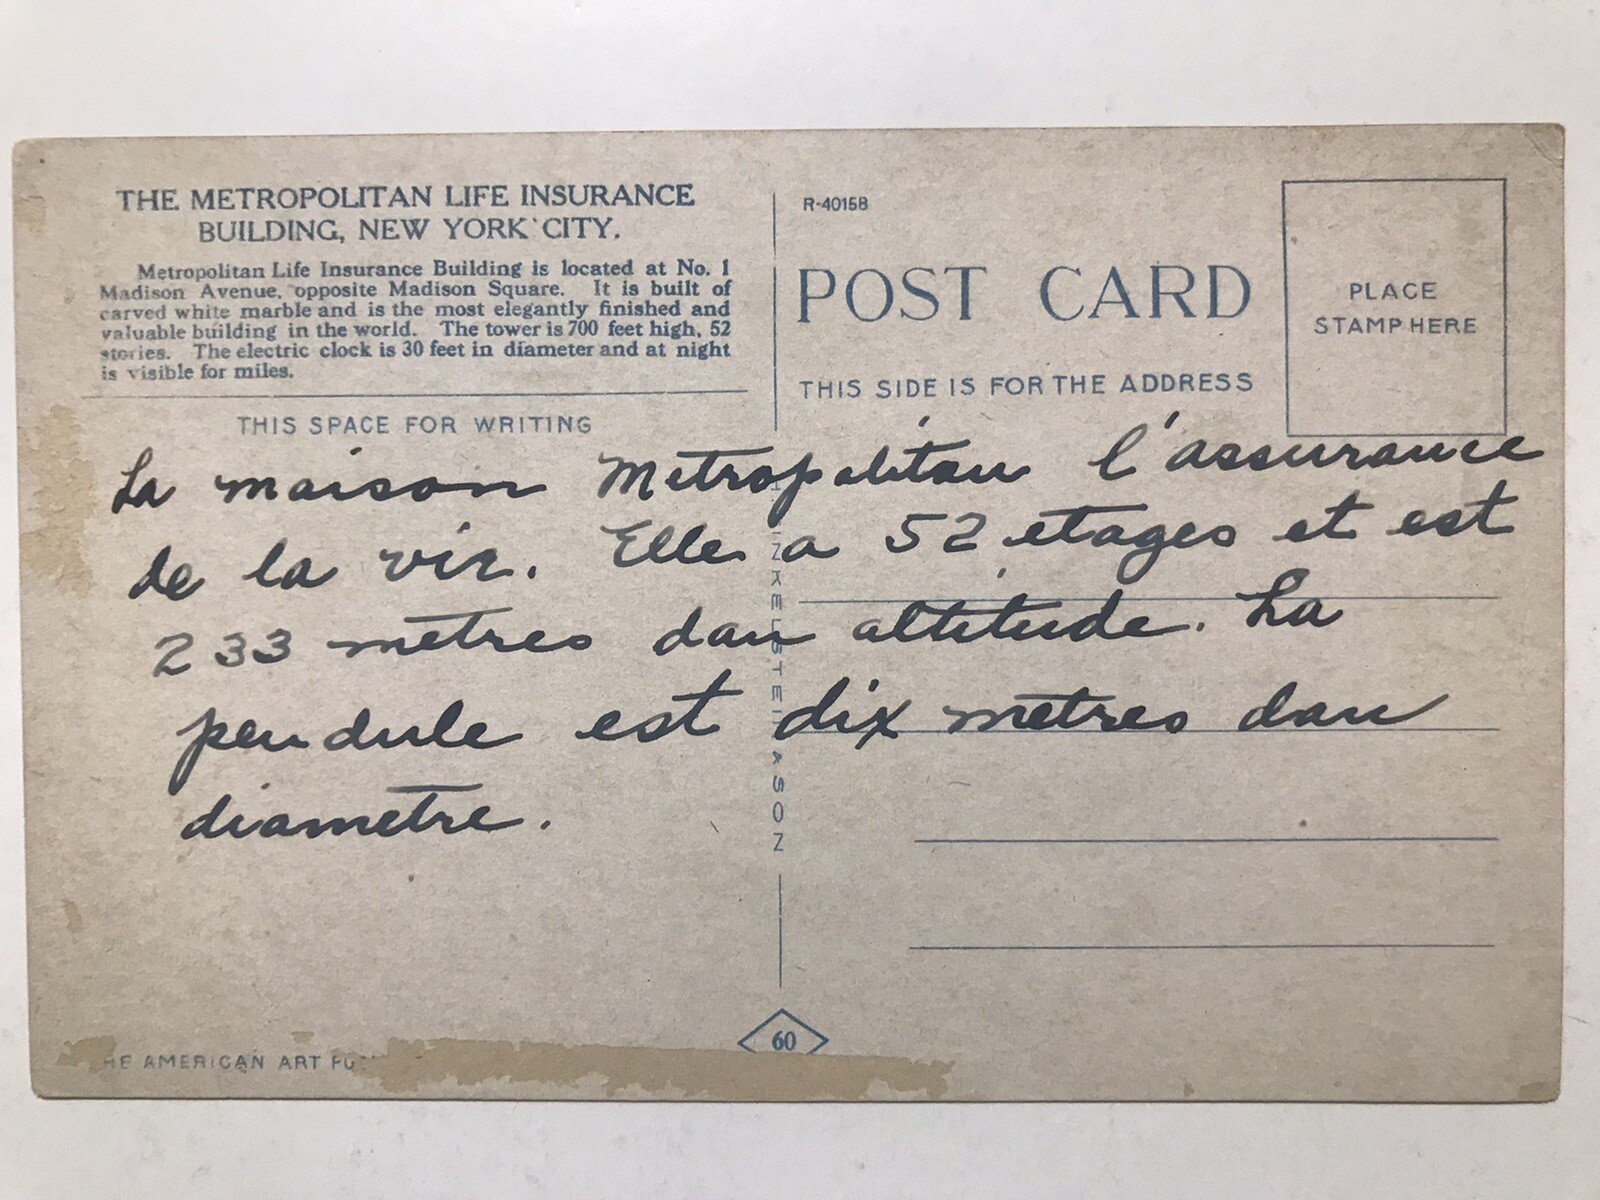 THE METROPOLITAN LIFE INSURANCE
BUILDING, NEW YORK CITY.
Metropolitan Life Insurance Building is located at No. 1
Madison Avenue, opposite Madison Square. It is built of
carved white marble and is the most elegantly finished and
valuable building in the world. The tower is 700 feet high, 52
stories. The electric clock is 30 feet in diameter and at night
is visible for miles.
THIS SPACE FOR WRITING
R-40158
POST CARD
THIS SIDE IS FOR THE ADDRESS
PLACE
STAMP HERE
La maison Metropolitan l'assurance
de la vie. Elle a 52 etages et est
233 metres dan altitude. La
pendule est dix metres dan
diametre.
60
HE AMERICAN ART